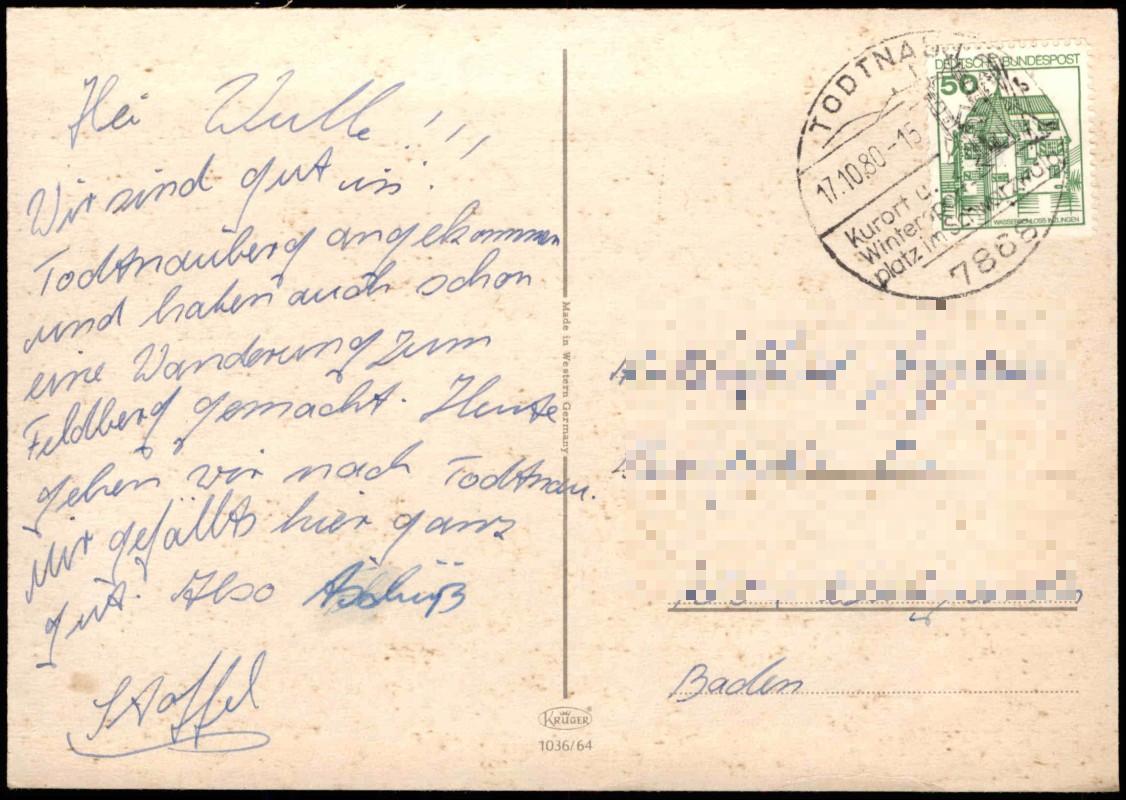 Hei Wulle!!!
Wir sind gut in!
Todtnauberg angekommen
und haben auch schon
eine Wanderung zum
Feldberg gemacht. Heute
gehen wir nach Todtnau.
Mir gefällts hier ganz
gut. Also Tschüß
Staffel
Made in Western Germany
KRÜGER
1036/64
DEUTSCHE BUNDESPOST
50
WASSERSCHLOSS INZLINGEN
TODTNAU
17.10.80-15
Kurort u.
Wintersport-
platz im Schwarzwald
7868
Baden